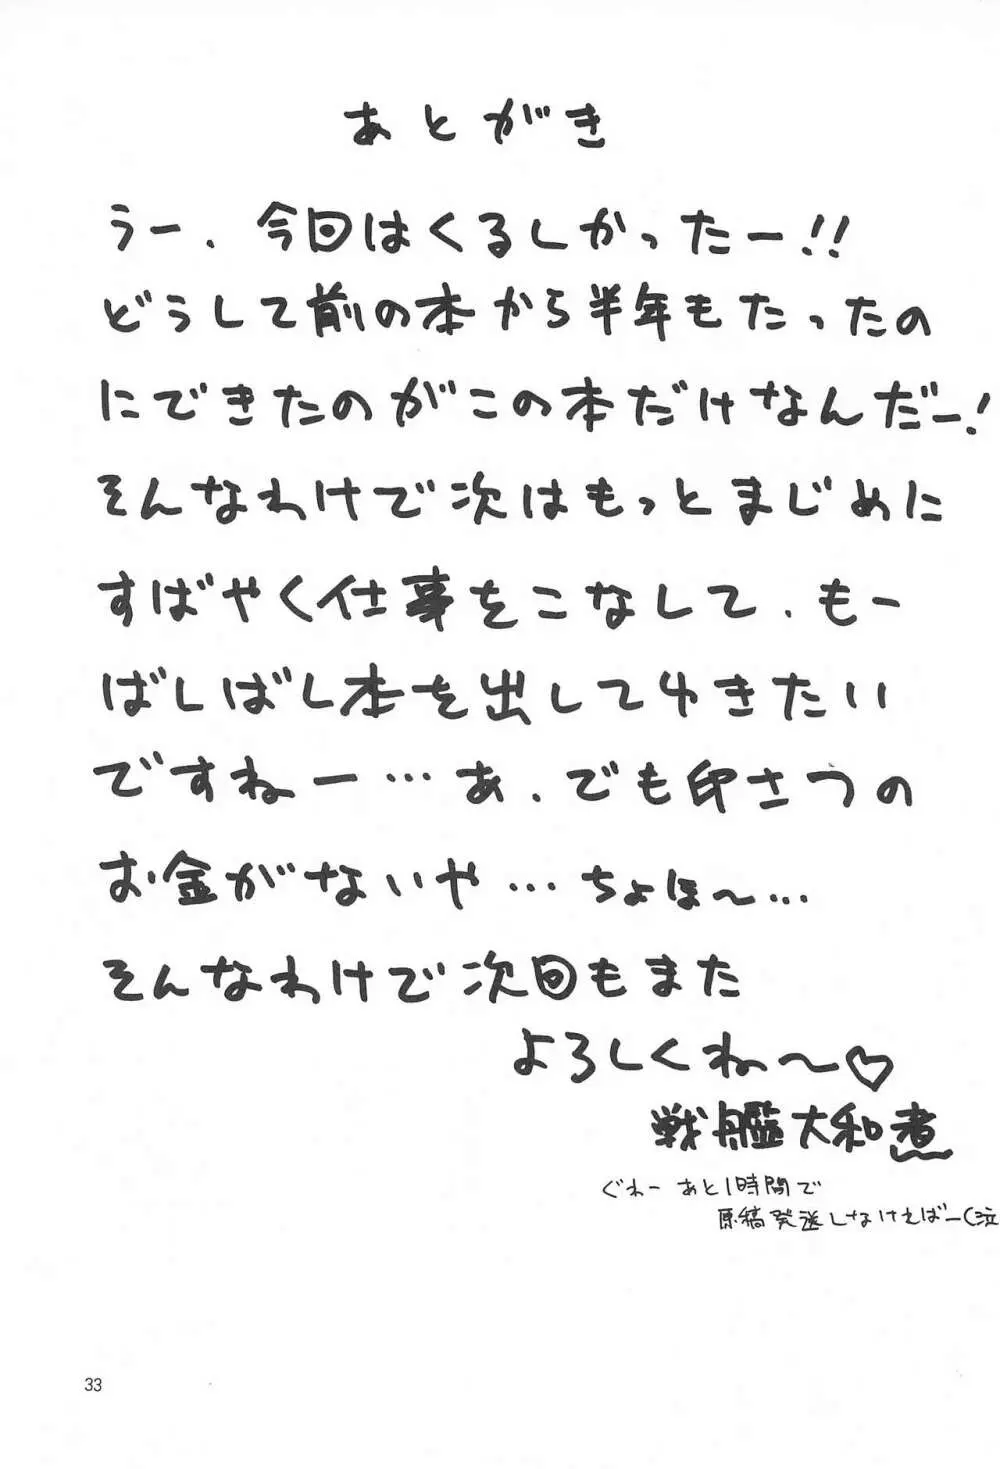 あとがき
うー、今回はくるしかったー!!
どうして前の本から半年もたったの
にできたのがこの本だけなんだー!
そんなわけで次はもっとまじめに
すばやく仕事をこなして、もー
ばしばし本を出してゆきたい
ですねー…あ、でも印さつの
お金がないや…ちょほ〜…
そんなわけで次回もまた
よろしくね〜♡
戦艦大和煮
ぐわー あと1時間で
原稿発送しなければー(泣
33